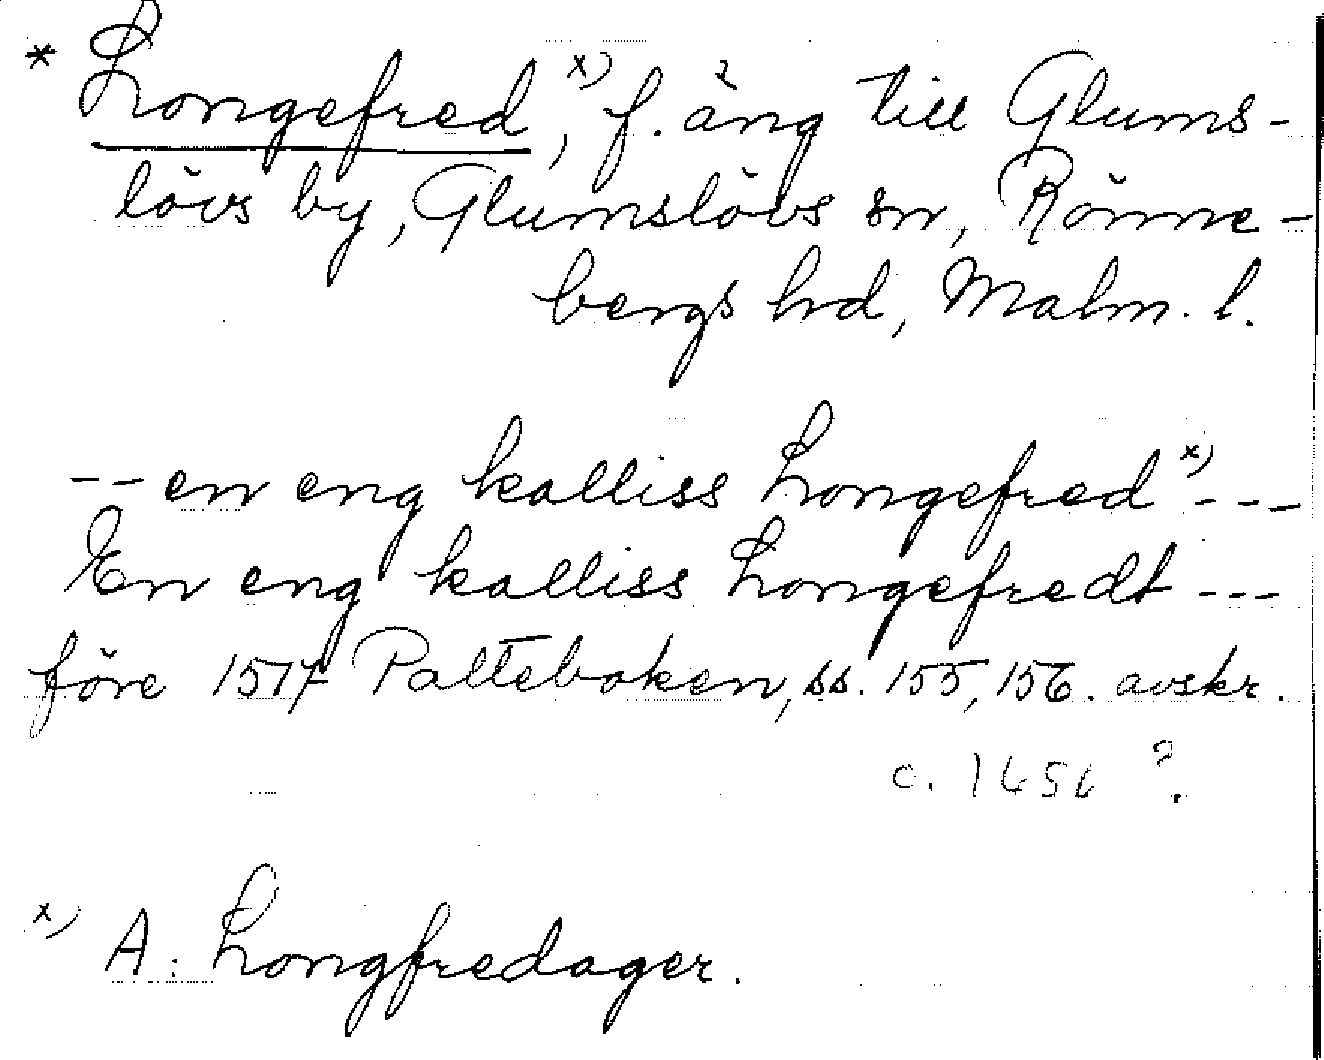 * Longefred,ˣ⁾ f. äng till Glums-
lövs by, Glumslövs sn, Rönne-
bergs hd, Malm. l.
-- en eng kalliss Longefredˣ⁾ ---
En eng kalliss Longefredt ---
före 1517 Palteboken, ss. 155, 156. avskr.
c. 1650 ?
ˣ⁾ A: Longfredager.